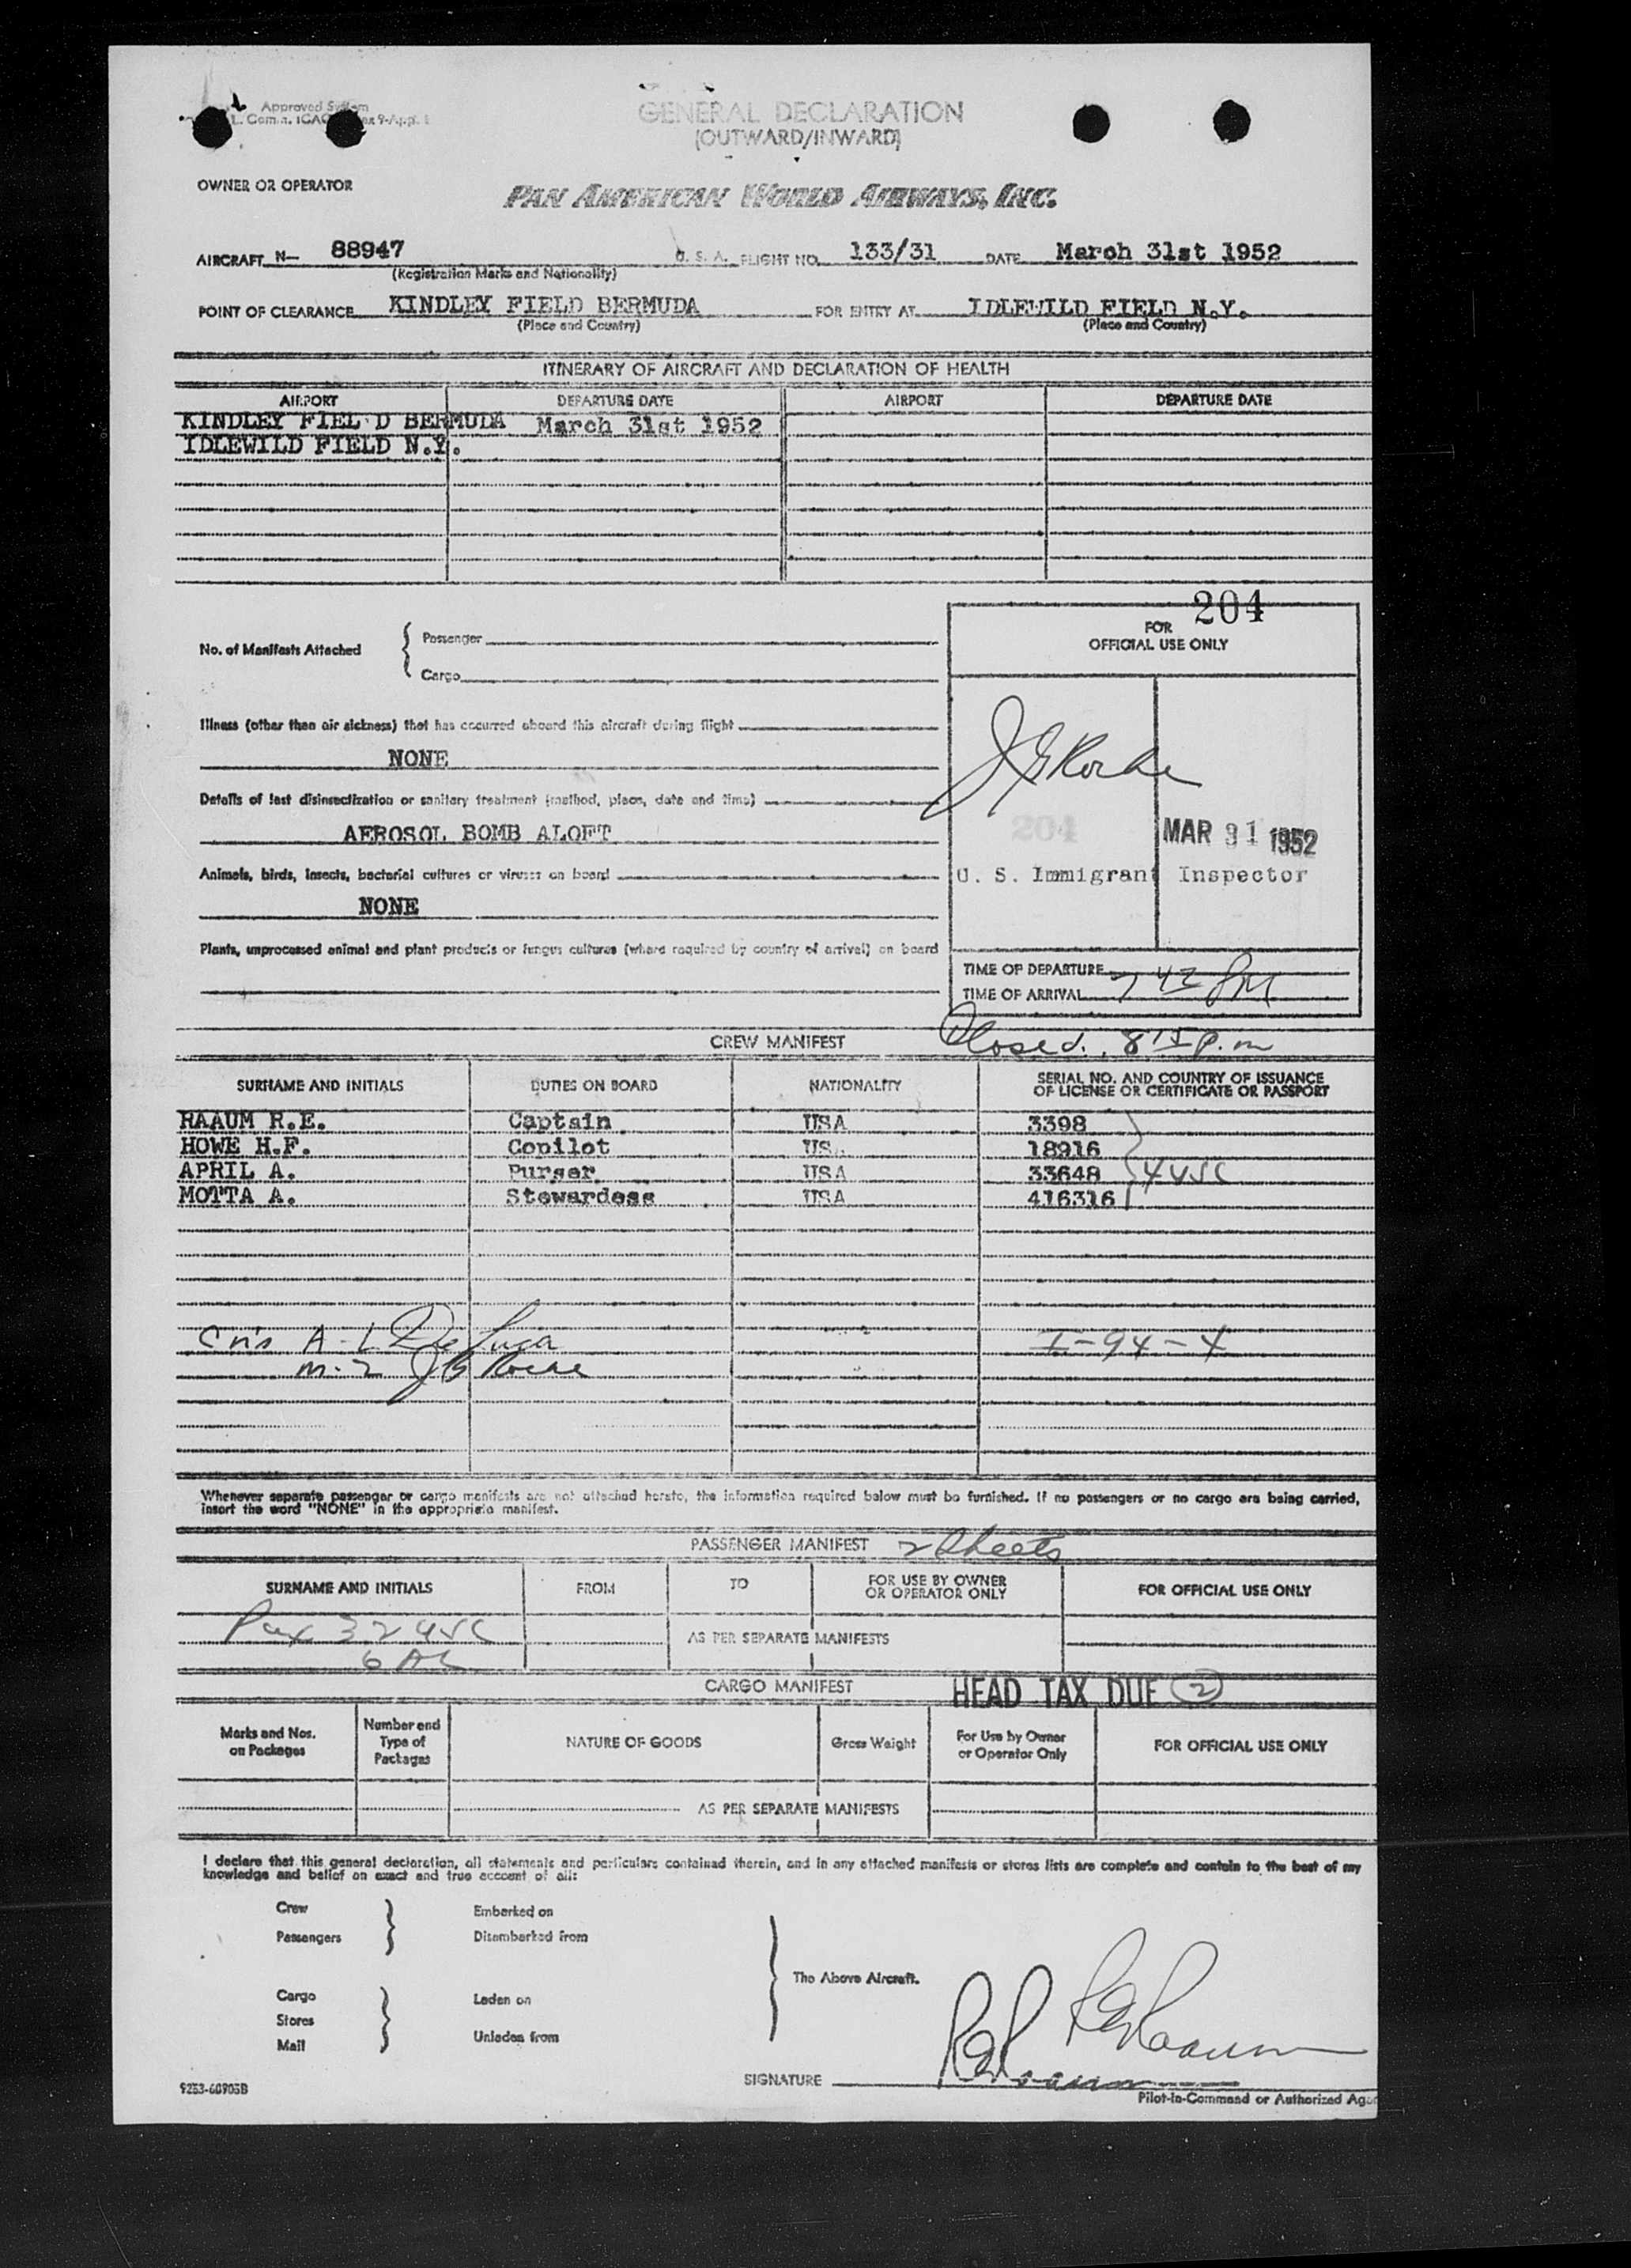 Approved System
GENERAL DECLARATION
(OUTWARD/INWARD)
OWNER OR OPERATOR
PAN AMERICAN WORLD AIRWAYS, INC.
AIRCRAFT N— 88947 U. S. A. FLIGHT NO. 133/31 DATE March 31st 1952
(Registration Marks and Nationality)
POINT OF CLEARANCE KINDLEY FIELD BERMUDA FOR ENTRY AT IDLEWILD FIELD N.Y.
(Place and Country) (Place and Country)
ITINERARY OF AIRCRAFT AND DECLARATION OF HEALTH
AIRPORT DEPARTURE DATE AIRPORT DEPARTURE DATE
KINDLEY FIEL D BERMUDA March 31st 1952
IDLEWILD FIELD N.Y.
204
FOR
OFFICIAL USE ONLY
No. of Manifests Attached { Passenger
Cargo
Illness (other than air sickness) that has occurred aboard this aircraft during flight
NONE
Details of last disinsectization or sanitary treatment (method, place, date and time)
AEROSOL BOMB ALOFT
204 MAR 31 1952
Animals, birds, insects, bacterial cultures or viruses on board
U. S. Immigrant Inspector
NONE
Plants, unprocessed animal and plant products or fungus cultures (where required by country of arrival) on board
TIME OF DEPARTURE
TIME OF ARRIVAL 7 42 PM
Closed. 8 15 p.m
CREW MANIFEST
SURNAME AND INITIALS DUTIES ON BOARD NATIONALITY SERIAL NO. AND COUNTRY OF ISSUANCE
OF LICENSE OR CERTIFICATE OR PASSPORT
RAAUM R.E. Captain USA 3398
HOWE H.F. Copilot US 18916
APRIL A. Purser USA 33648 4 USC
MOTTA A. Stewardess USA 416316
I-94-4
Whenever separate passenger or cargo manifests are not attached hereto, the information required below must be furnished. If no passengers or no cargo are being carried,
insert the word "NONE" in the appropriate manifest.
PASSENGER MANIFEST 2 Sheets
SURNAME AND INITIALS FROM TO FOR USE BY OWNER
OR OPERATOR ONLY FOR OFFICIAL USE ONLY
Pax 32 USC
AS PER SEPARATE MANIFESTS
6 AL
CARGO MANIFEST
HEAD TAX DUE 2
Marks and Nos.
on Packages Number and
Type of
Packages NATURE OF GOODS Gross Weight For Use by Owner
or Operator Only FOR OFFICIAL USE ONLY
AS PER SEPARATE MANIFESTS
I declare that this general declaration, all statements and particulars contained therein, and in any attached manifests or stores lists are complete and contain to the best of my
knowledge and belief an exact and true account of all:
Crew Embarked on
Passengers Disembarked from
The Above Aircraft.
Cargo Laden on
Stores
Mail Unladen from
R E Raaum
R E Raaum
SIGNATURE
Pilot-in-Command or Authorized Age
9253-60905B